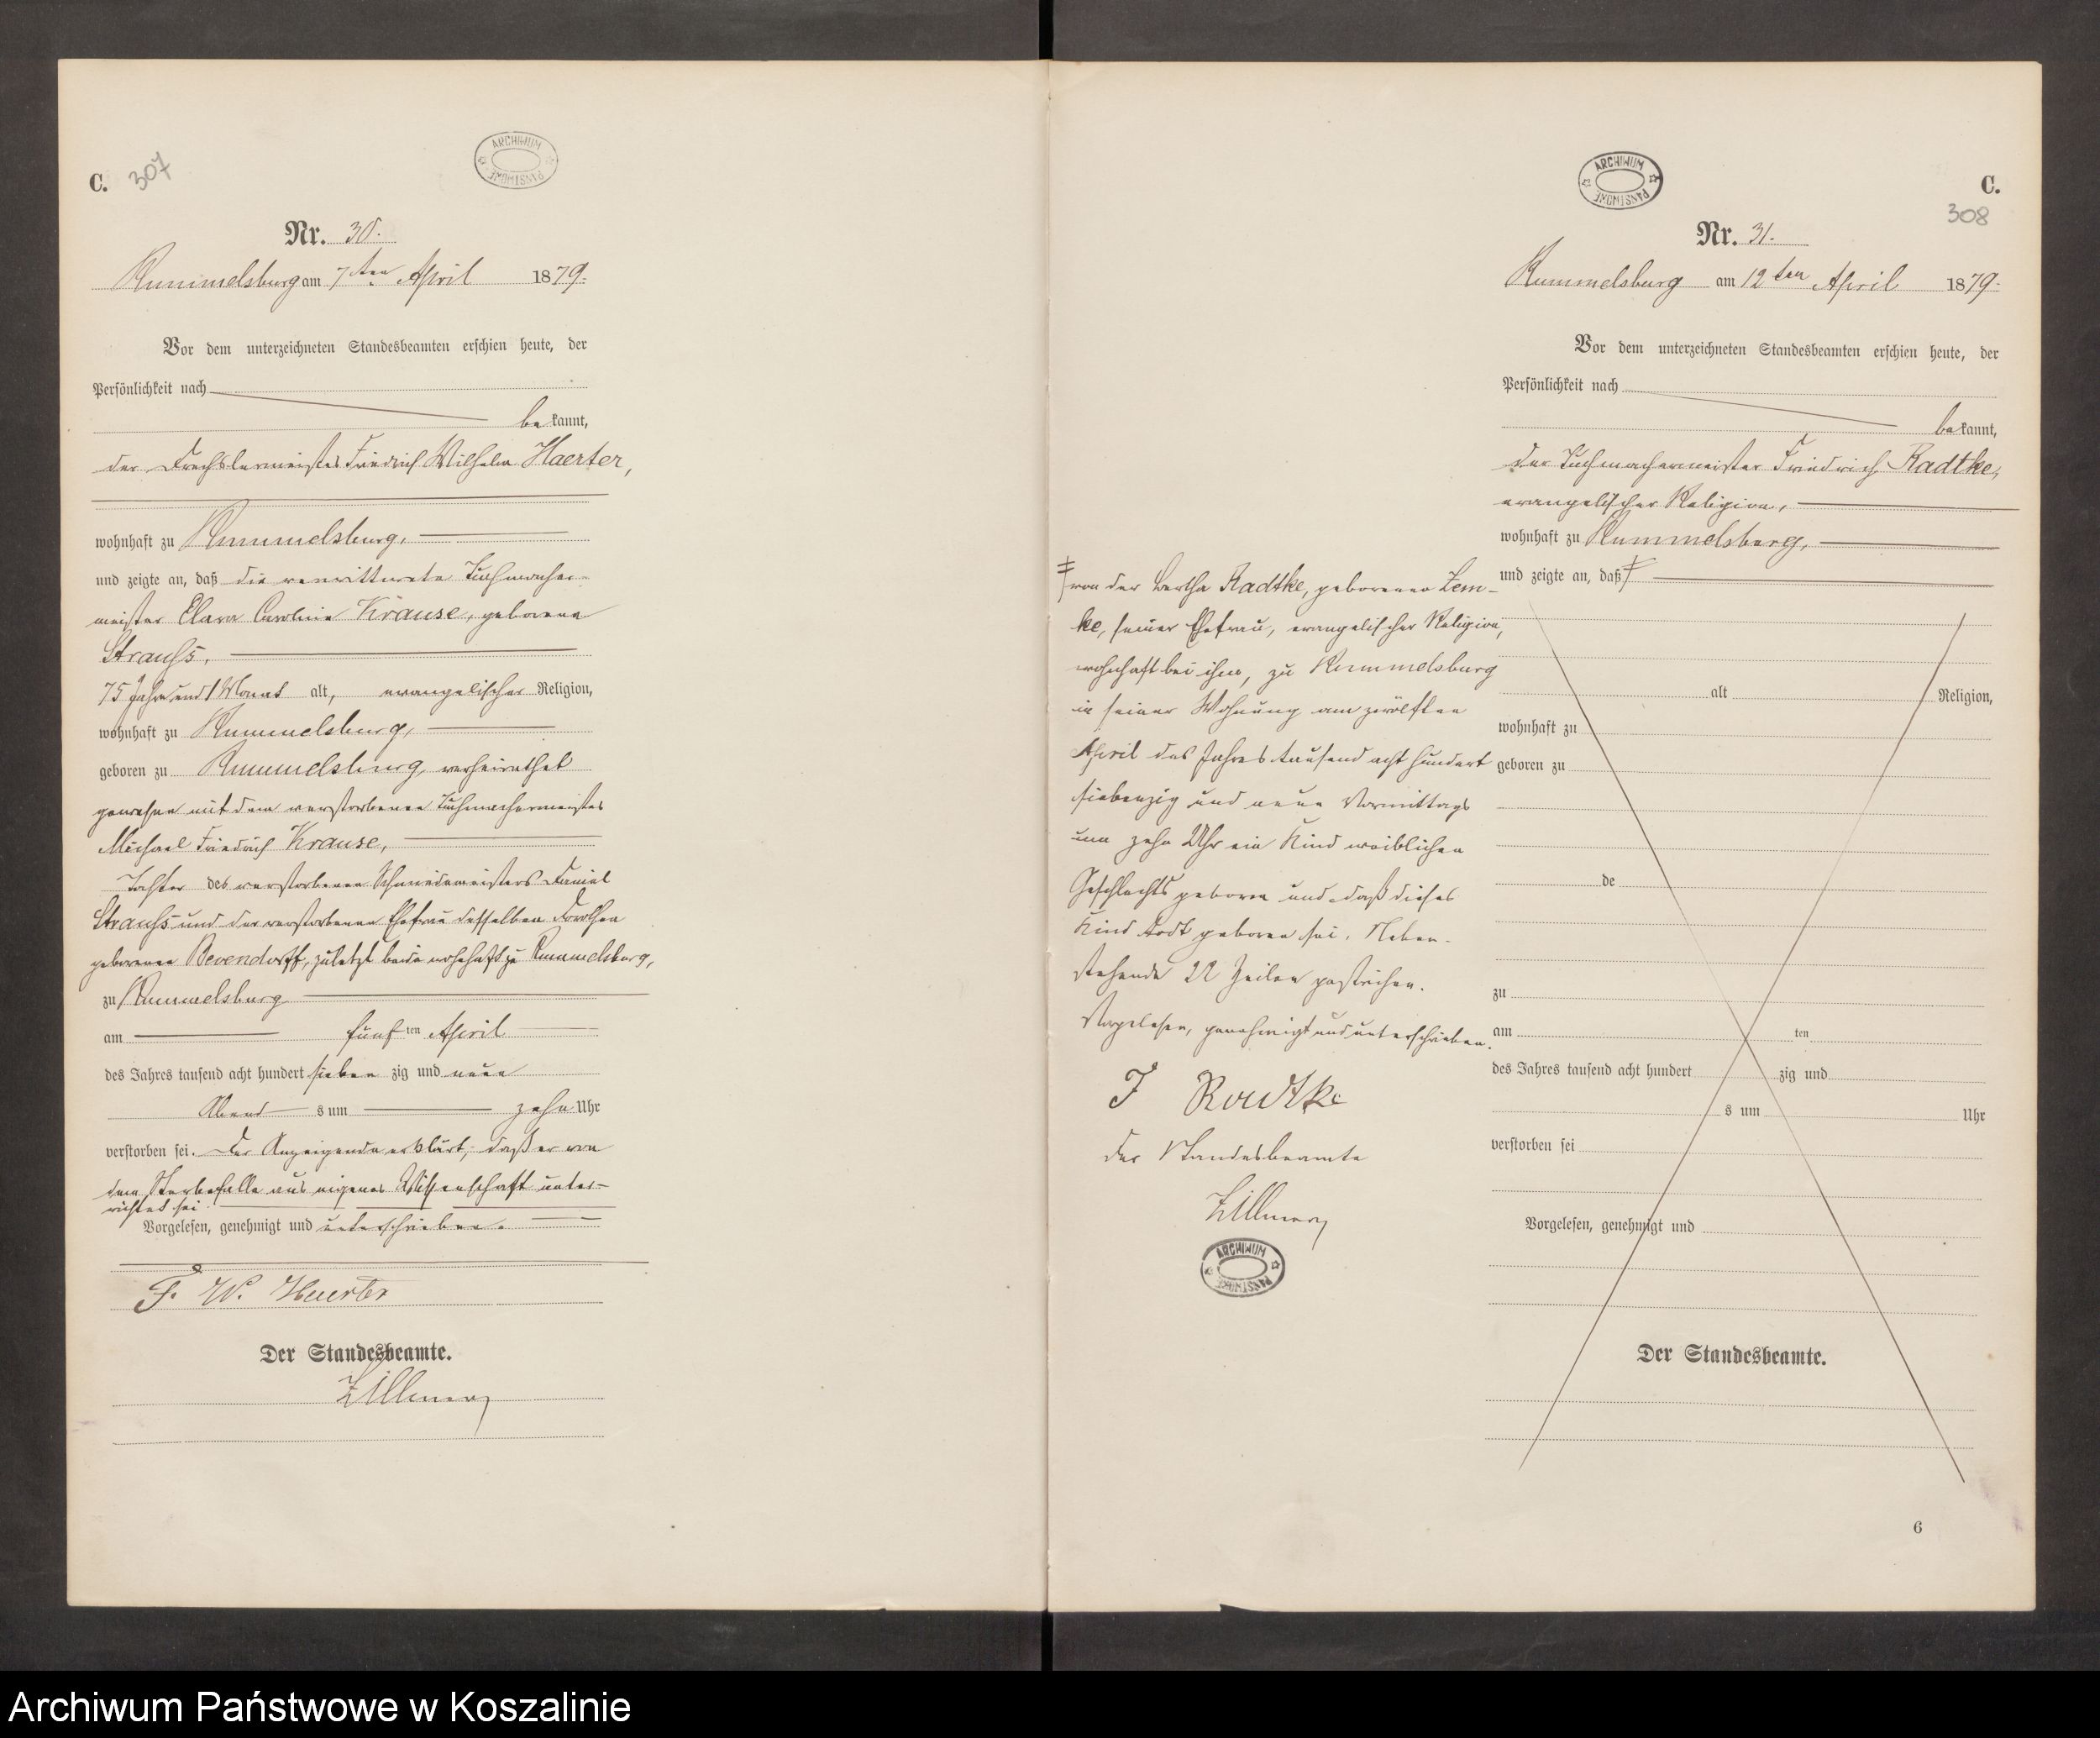 C. 307
ARCHIWUM PAŃSTWOWE
Nr. 30.
Rummelsburg am 7ten April 1879.
Vor dem unterzeichneten Standesbeamten erschien heute, der
Persönlichkeit nach
be kannt,
der Drechslermeister Friedrich Wilhelm Haerter,
wohnhaft zu Rummelsburg,
und zeigte an, daß die verwittwete Tuchmacher-
meister Clara Caroline Krause, geborene
Strauss,
75 Jahr und 1 Monat alt, evangelischer Religion,
wohnhaft zu Rummelsburg,
geboren zu Rummelsburg, verheirathet
gewesen mit dem verstorbenen Tuchmachermeister
Michael Friedrich Krause,
Tochter des verstorbenen Schneidemeisters Daniel
Strauss und der verstorbenen Ehefrau desselben Dorothea
geborenen Bevendorff, zuletzt beide wohnhaft zu Rummelsburg,
zu Rummelsburg
am fünf ten April
des Jahres tausend acht hundert sieben zig und neun
Abend s um zehn Uhr
verstorben sei. Der Anzeigende erklärt, daß er von
dem Sterbefalle aus eigener Wissenschaft unter-
richtet sei.
Vorgelesen, genehmigt und unterschrieben.
F. W. Haerter
Der Standesbeamte.
Zillmer
ARCHIWUM PAŃSTWOWE
C.
308
Nr. 31.
Rummelsburg am 12ten April 1879.
Vor dem unterzeichneten Standesbeamten erschien heute, der
Persönlichkeit nach
be kannt,
der Tuchmachermeister Friedrich Radtke,
evangelischer Religion,
wohnhaft zu Rummelsburg,
und zeigte an, daß
von der Bertha Radtke, geborenen Zem-
ke, seiner Ehefrau, evangelischer Religion,
wohnhaft bei ihm, zu Rummelsburg
in seiner Wohnung am zwölften
April des Jahres tausend acht hundert
siebenzig und neun Vormittags
um zehn Uhr ein Kind weiblichen
Geschlechts geboren und daß dieses
Kind todt geboren sei. Neben-
stehende 22 Zeilen gestrichen.
Vorgelesen, genehmigt und unterschrieben.
F Radtke
Der Standesbeamte
Zillmer
ARCHIWUM PAŃSTWOWE
alt Religion,
wohnhaft zu
geboren zu
de
zu
am ten
des Jahres tausend acht hundert zig und
s um Uhr
verstorben sei
Vorgelesen, genehmigt und
Der Standesbeamte.
6
Archiwum Państwowe w Koszalinie